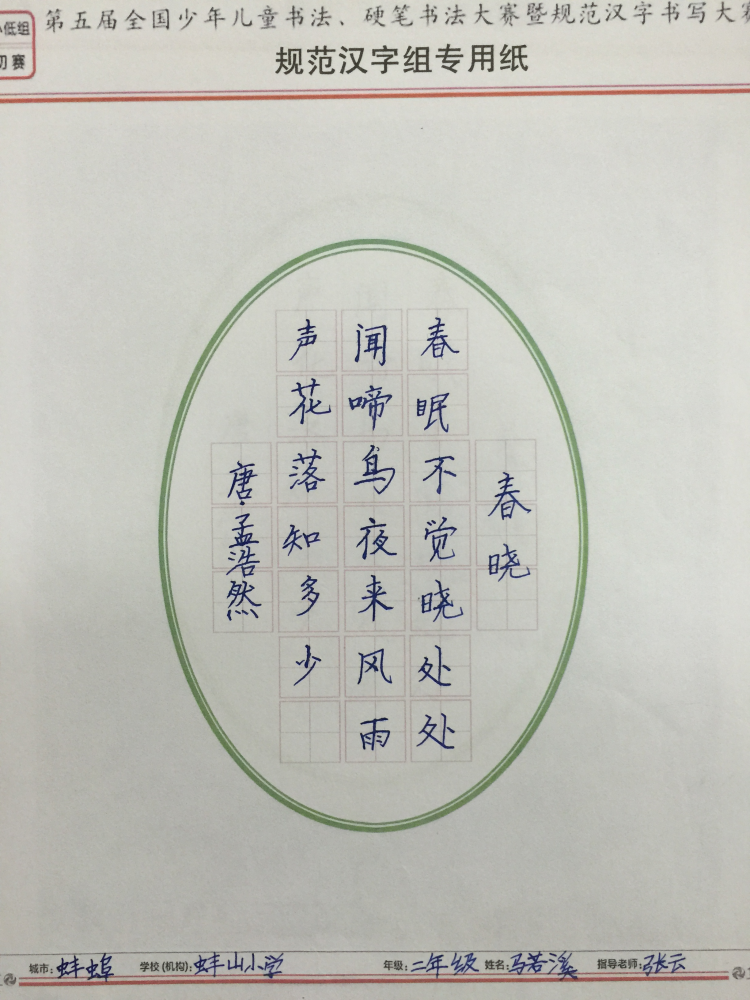 第五届全国少年儿童书法、硬笔书法大赛暨规范汉字书写大赛
低组
初赛
规范汉字组专用纸
春晓
春眠不觉晓处处
闻啼鸟夜来风雨
声花落知多少
唐·孟浩然
城市:蚌埠 学校(机构):蚌山小学 年级:二年级 姓名:马若溪 指导老师:张云